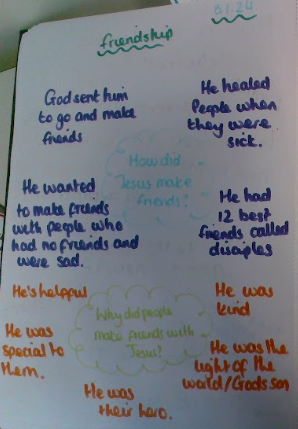 8.1.24
friendship
God sent him
to go and make
friends
He healed
People when
they were
sick.
How did
Jesus make
friends?
He wanted
to make friends
with people who
had no friends and
were sad.
He had
12 best
friends called
disciples
He's helpful
He was
kind
Why did people
make friends with
Jesus?
He was
special to
them.
He was the
light of the
world/Gods son
He was
their hero.